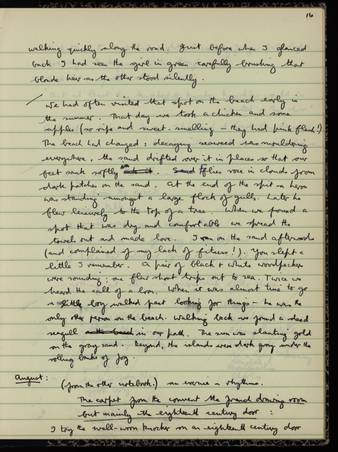 16
walking quickly along the road. Just before when I glanced
back I had seen the girl in green carefully brushing that
blonde hair as the other stood silently.
We had often visited that spot on the beach early in
the summer. That day we took a chicken and some
apples (so ripe and sweet-smelling – they had pink flesh!)
The beach had changed; decaying seaweed was mouldering
everywhere, the sand drifted over it in places so that our
feet sank softly. Flies rose in clouds from
dark patches on the sand. At the end of the spit a heron
was standing amongst a large flock of gulls. Later he
flew leisurely to the top of a tree. When we found a
spot that was dry and comfortable we spread the
towel out and made love. I ran on the sand afterwards
(and complained of my lack of fitness!). You slept a
little I remember. A pair of black & white woodpeckers
were sounding and flew short trips out to sea. Twice we
heard the call of a loon. When it was almost time to go
a little boy walked past looking for things – he was the
only other person on the beach. Walking back we found a dead
seagull in our path. The sun was slanting gold
on the gray sand. Beyond, the islands were dark gray under the
rolling banks of fog.
August:
(from the other notebook:) an evence in rhythms.
The carpet from the convent the grand drawing room
but mainly the eighteenth century door:
I try the well-worn knocker on an eighteenth century door